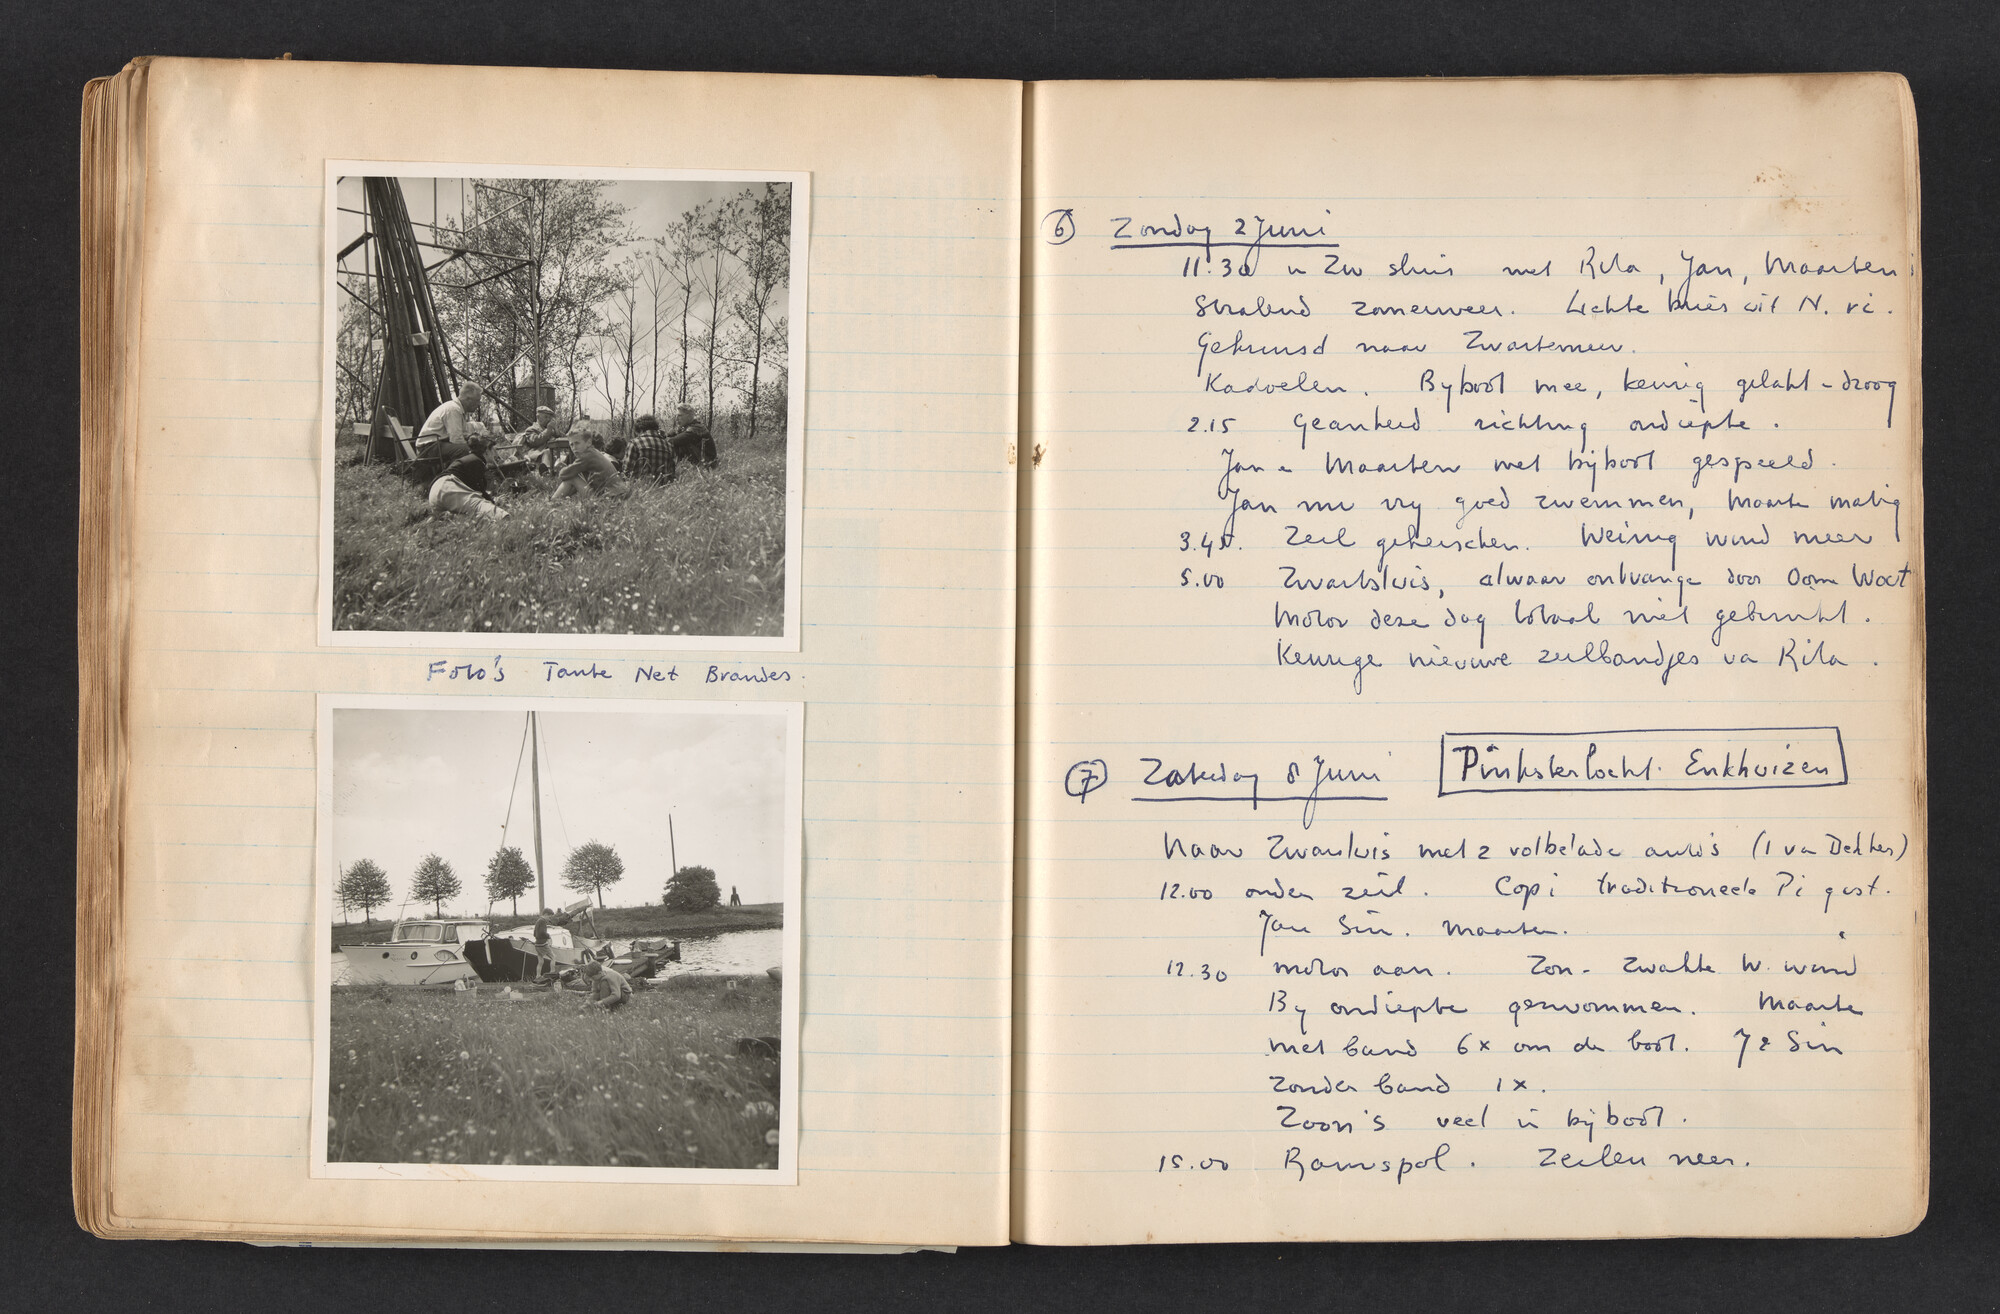 Foto's Tante Net Brandes.
6 Zondag 2 Juni
11.30 u Zw sluis met Rita, Jan, Maarten
Stralend zomerweer. Lichte bries uit N. ri.
Gekruisd naar Zwartemeer.
Kadoelen. Bijboot mee, keurig gelakt - droog
2.15 Geankerd richting ondiepte.
Jan e Maarten met bijboot gespeeld.
Jan nu vrij goed zwemmen, Maarte matig
3.45. Zeil geheschen. Weinig wind meer
5.00 Zwartsluis, alwaar ontvange door Oome Wout
Motor deze dag totaal niet gebruikt.
Keurige nieuwe zeilbandjes va Rita.
7 Zaterdag 8 Juni Pinkstertocht. Enkhuizen
Naar Zwarsluis met 2 volbelade auto's (1 va Dekker)
12.00 onder zeil. Copi traditioneele Pi gast.
Jan Sin. Maarten.
12.30 motor aan. Zon - Zwakke W. wind
By ondiepte gezwommen. Maarte
met band 6x om de boot. J e Sin
zonder band 1x.
Zoon's veel in bijboot.
15.00 Ramspol. Zeilen neer.